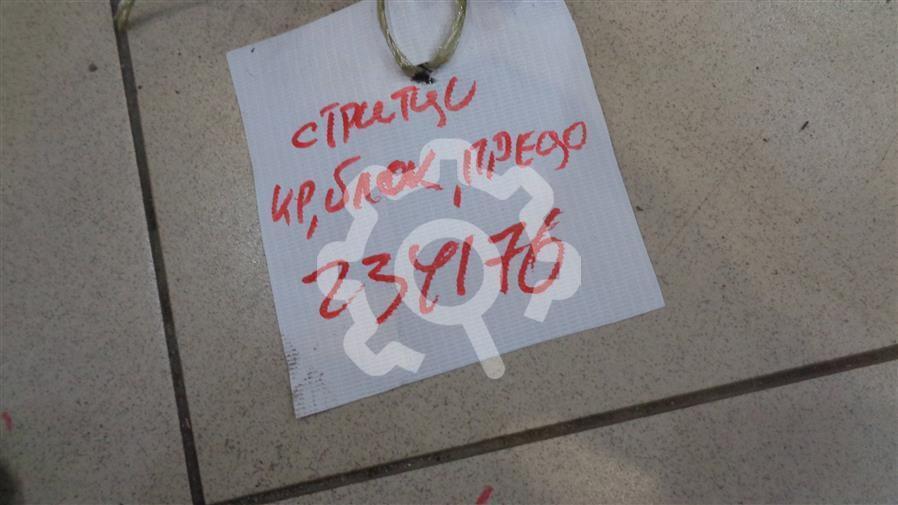 стритус
кр, блок, предо
234176